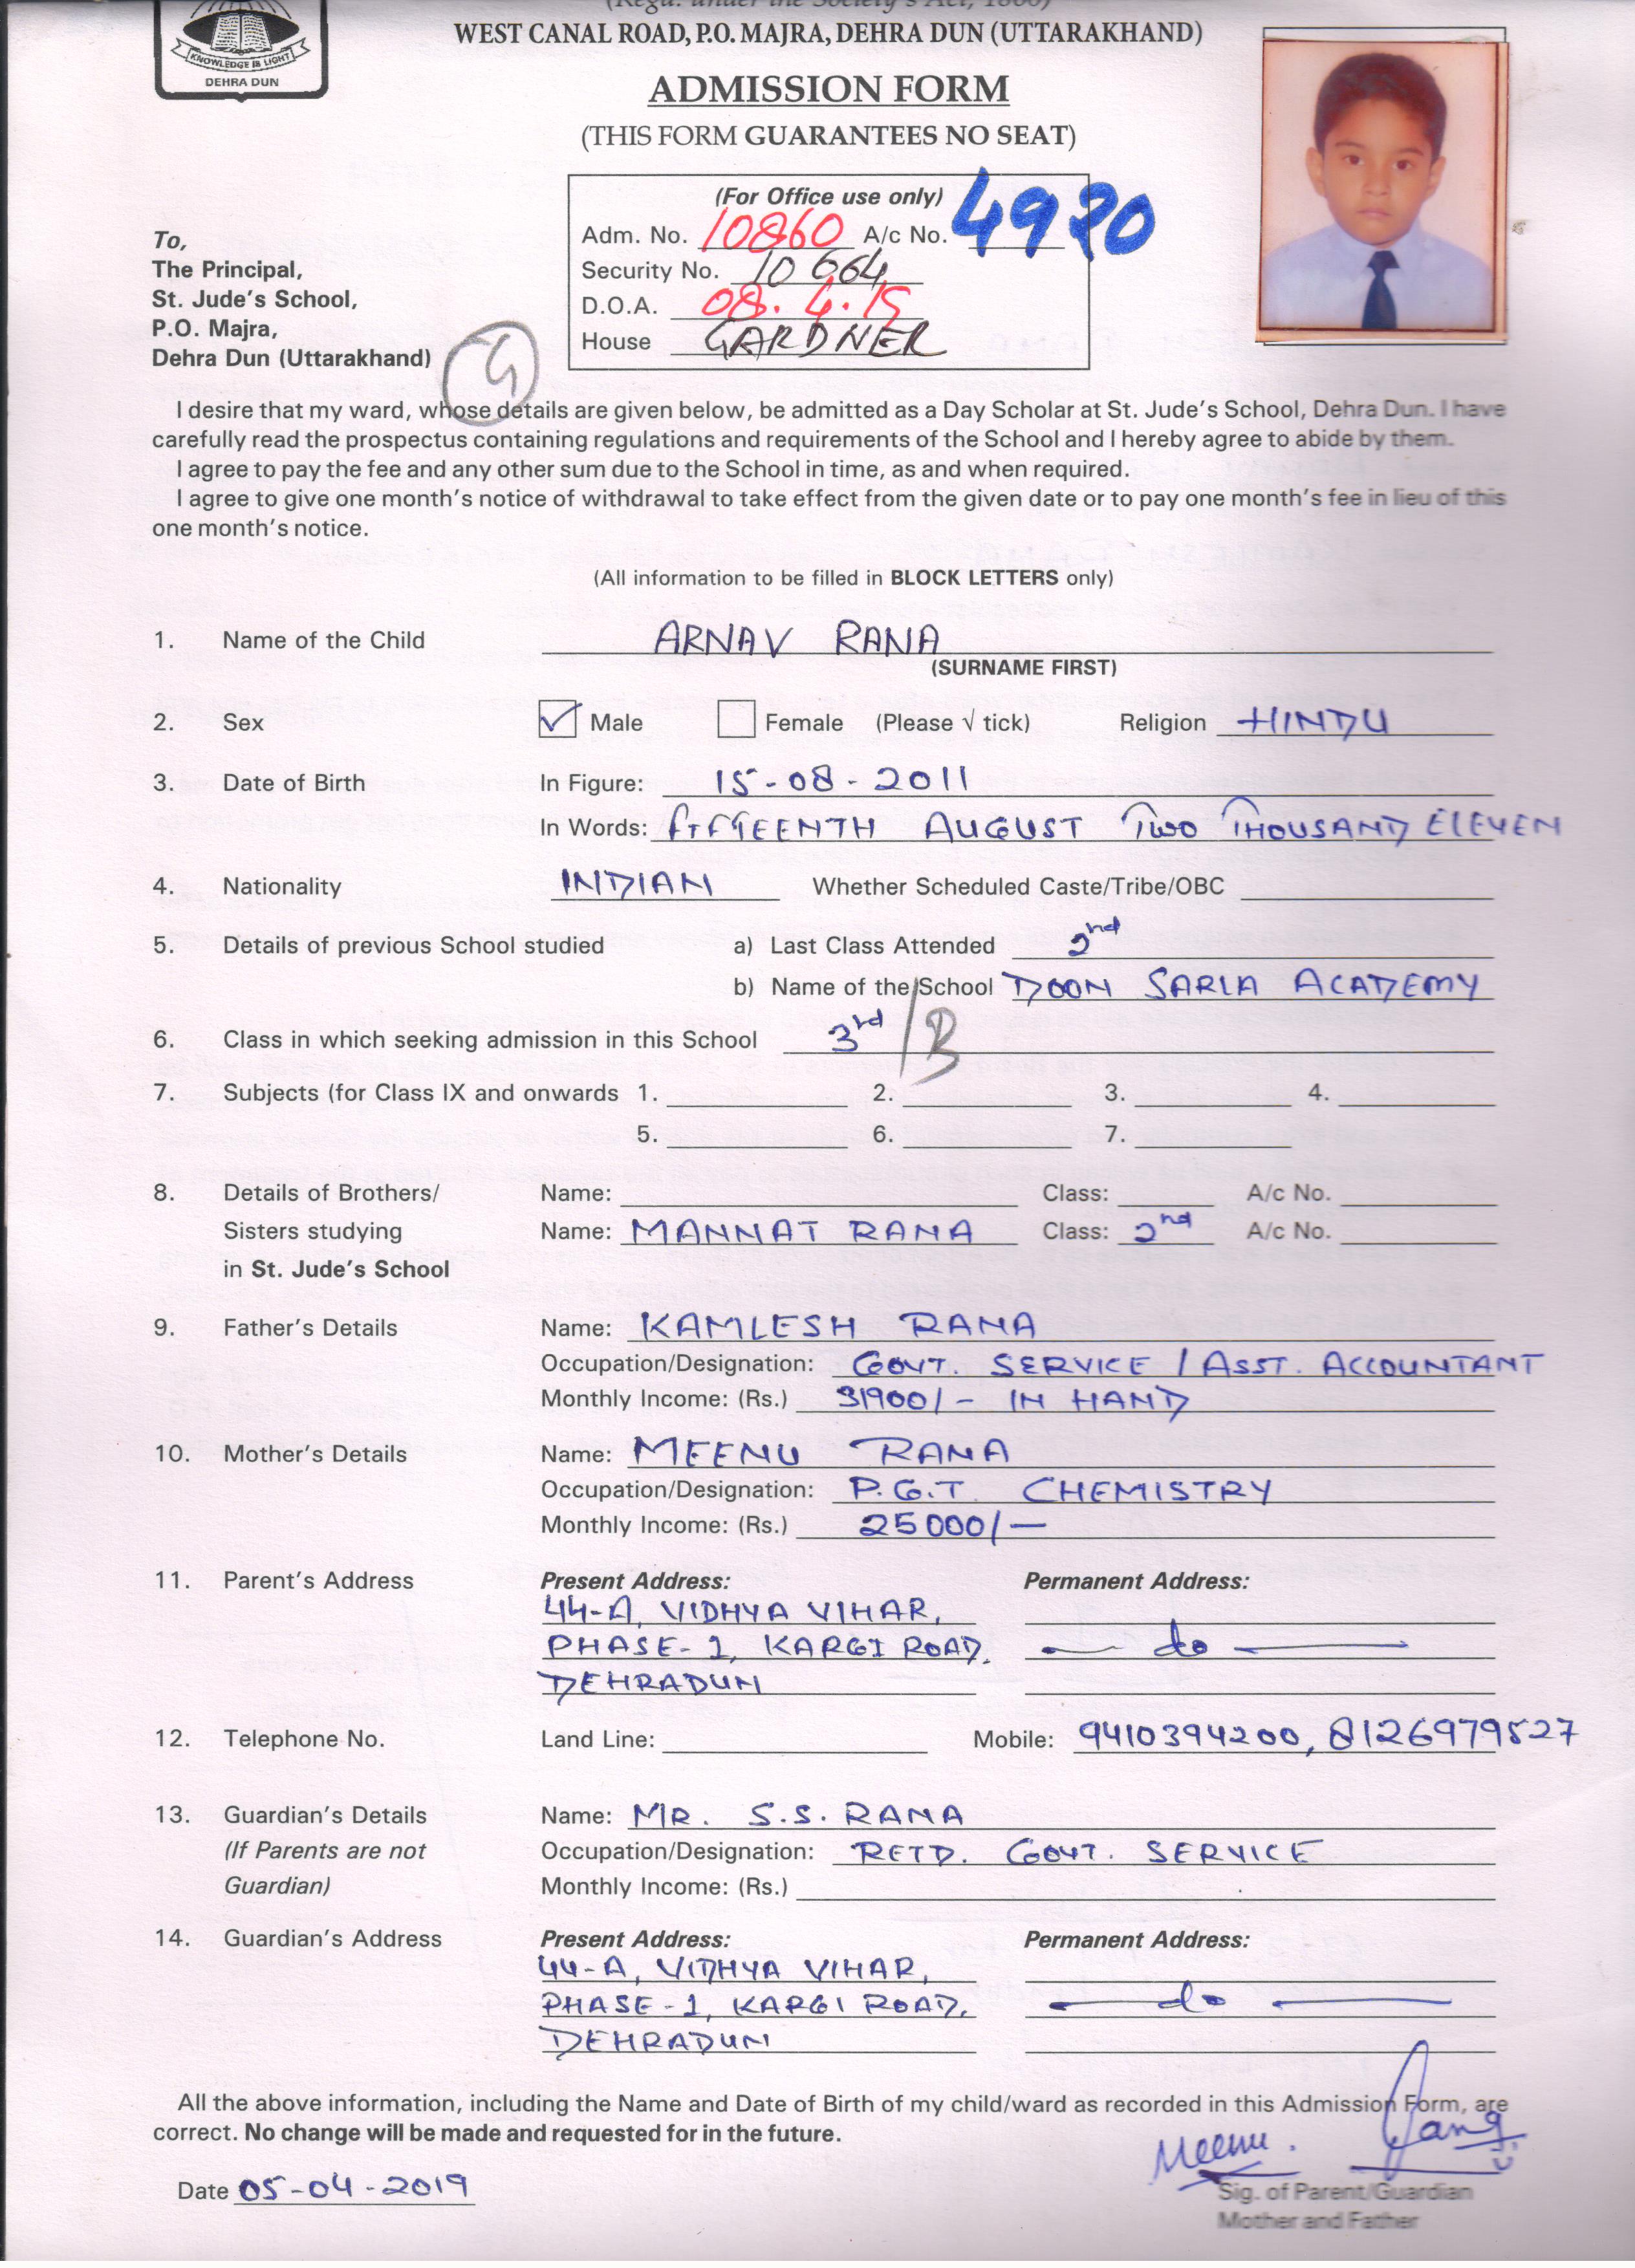 (Regd. under the Society's Act, 1860)
WEST CANAL ROAD, P.O. MAJRA, DEHRA DUN (UTTARAKHAND)
KNOWLEDGE IS LIGHT
DEHRA DUN
ADMISSION FORM
(THIS FORM GUARANTEES NO SEAT)
(For Office use only)
Adm. No. 10860 A/c No. 4920
Security No. 10664
D.O.A. 08.4.19
House GARDNER
To,
The Principal,
St. Jude's School,
P.O. Majra,
Dehra Dun (Uttarakhand)
G
I desire that my ward, whose details are given below, be admitted as a Day Scholar at St. Jude's School, Dehra Dun. I have
carefully read the prospectus containing regulations and requirements of the School and I hereby agree to abide by them.
I agree to pay the fee and any other sum due to the School in time, as and when required.
I agree to give one month's notice of withdrawal to take effect from the given date or to pay one month's fee in lieu of this
one month's notice.
(All information to be filled in BLOCK LETTERS only)
1. Name of the Child ARNAV RANA
(SURNAME FIRST)
2. Sex Male Female (Please √ tick) Religion HINDU
3. Date of Birth In Figure: 15-08-2011
In Words: FIFTEENTH AUGUST TWO THOUSAND ELEVEN
4. Nationality INDIAN Whether Scheduled Caste/Tribe/OBC
5. Details of previous School studied a) Last Class Attended 2nd
b) Name of the School DOON SARLA ACADEMY
6. Class in which seeking admission in this School 3rd / B
7. Subjects (for Class IX and onwards 1. 2. 3. 4.
5. 6. 7.
8. Details of Brothers/ Name: Class: A/c No.
Sisters studying Name: MANNAT RANA Class: 2nd A/c No.
in St. Jude's School
9. Father's Details Name: KAMLESH RANA
Occupation/Designation: GOVT. SERVICE / ASST. ACCOUNTANT
Monthly Income: (Rs.) 31900/- IN HAND
10. Mother's Details Name: MEENU RANA
Occupation/Designation: P.G.T. CHEMISTRY
Monthly Income: (Rs.) 25000/-
11. Parent's Address Present Address: Permanent Address:
44-A, VIDHYA VIHAR,
PHASE-1, KARGI ROAD, — do —
DEHRADUN
12. Telephone No. Land Line: Mobile: 9410394200, 8126979527
13. Guardian's Details Name: MR. S.S. RANA
(If Parents are not Occupation/Designation: RETD. GOVT. SERVICE
Guardian) Monthly Income: (Rs.)
14. Guardian's Address Present Address: Permanent Address:
44-A, VIDHYA VIHAR,
PHASE-1, KARGI ROAD, — do —
DEHRADUN
All the above information, including the Name and Date of Birth of my child/ward as recorded in this Admission Form, are
correct. No change will be made and requested for in the future.
Meenu.
Date 05-04-2019
Sig. of Parent/Guardian
Mother and Father